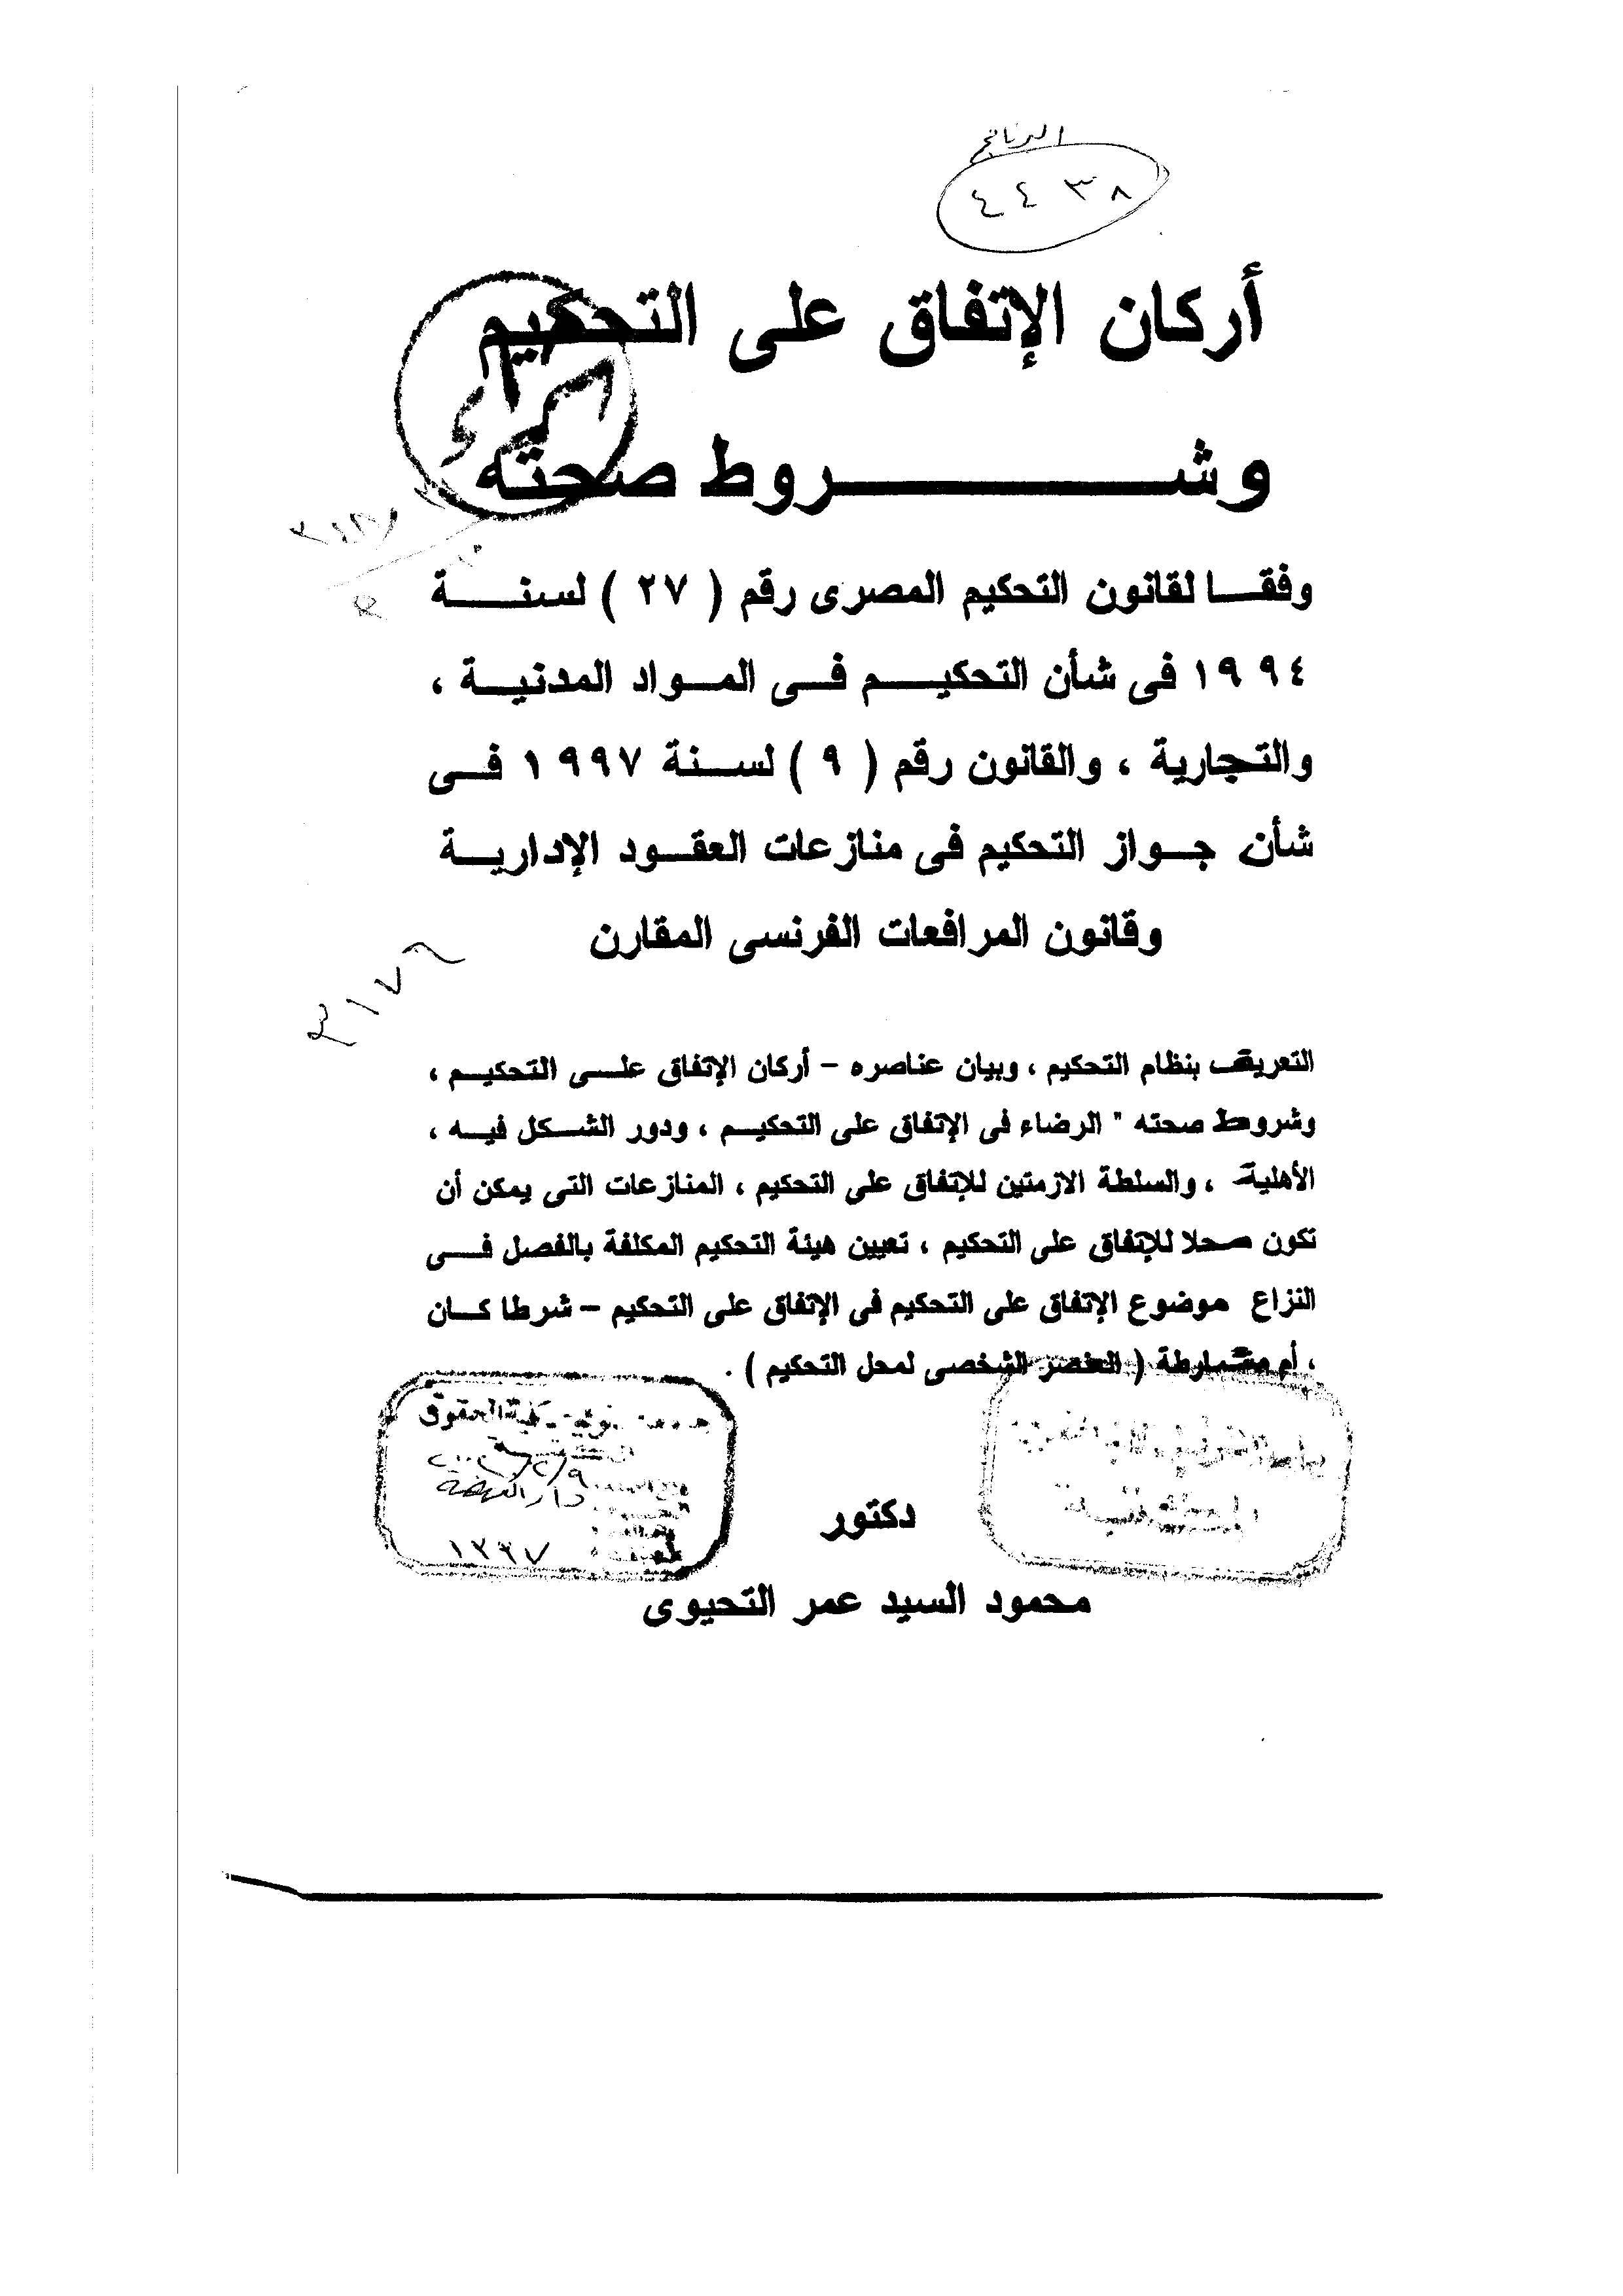 البرنامج
٤٤٣٨
أركان الإتفاق على التحكيم
وشـــــــروط صحته
وفقـا لقانون التحكيم المصرى رقم ( ٢٧ ) لسنـــة
١٩٩٤ فى شأن التحكيـــم فـى المـواد المدنيـة ،
والتجارية ، والقانون رقم ( ٩ ) لسـنة ١٩٩٧ فـى
شأن جـواز التحكيم فى منازعات العقـود الإداريـة
وقانون المرافعات الفرنسى المقارن
٣١٧٦
التعريف بنظام التحكيم ، وبيان عناصره – أركان الإتفاق علـى التحكيـم ،
وشروط صحته " الرضاء فى الإتفاق على التحكيـم ، ودور الشـكل فيـه ،
الأهلية ، والسلطة الازمتين للإتفاق على التحكيم ، المنازعات التى يمكن أن
تكون محلا للإتفاق على التحكيم ، تعيين هيئة التحكيم المكلفة بالفصل فـى
النزاع موضوع الإتفاق على التحكيم فى الإتفاق على التحكيم – شرطا كـان
، أم مشارطة ( العنصر الشخصى لمحل التحكيم ) .
كلية الحقوق
دار النهضة
دكتور
محمود السيد عمر التحيوى